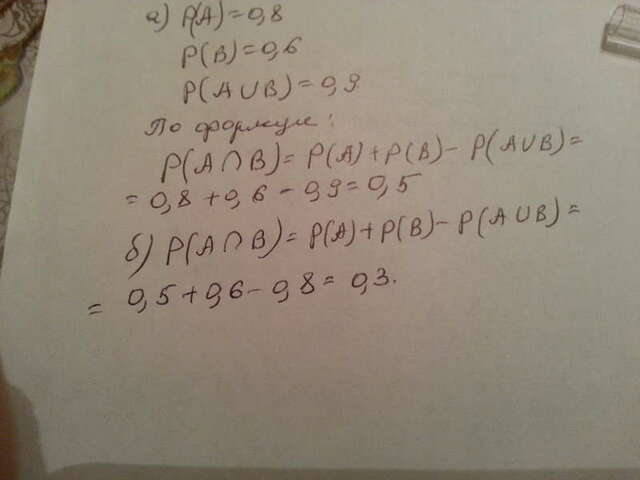 а) P(A)=0,8
P(B)=0,6
P(A∪B)=0,9
По формуле:
P(A∩B)=P(A)+P(B)-P(A∪B)=
=0,8+0,6-0,9=0,5
б) P(A∩B)=P(A)+P(B)-P(A∪B)=
=0,5+0,6-0,8=0,3.